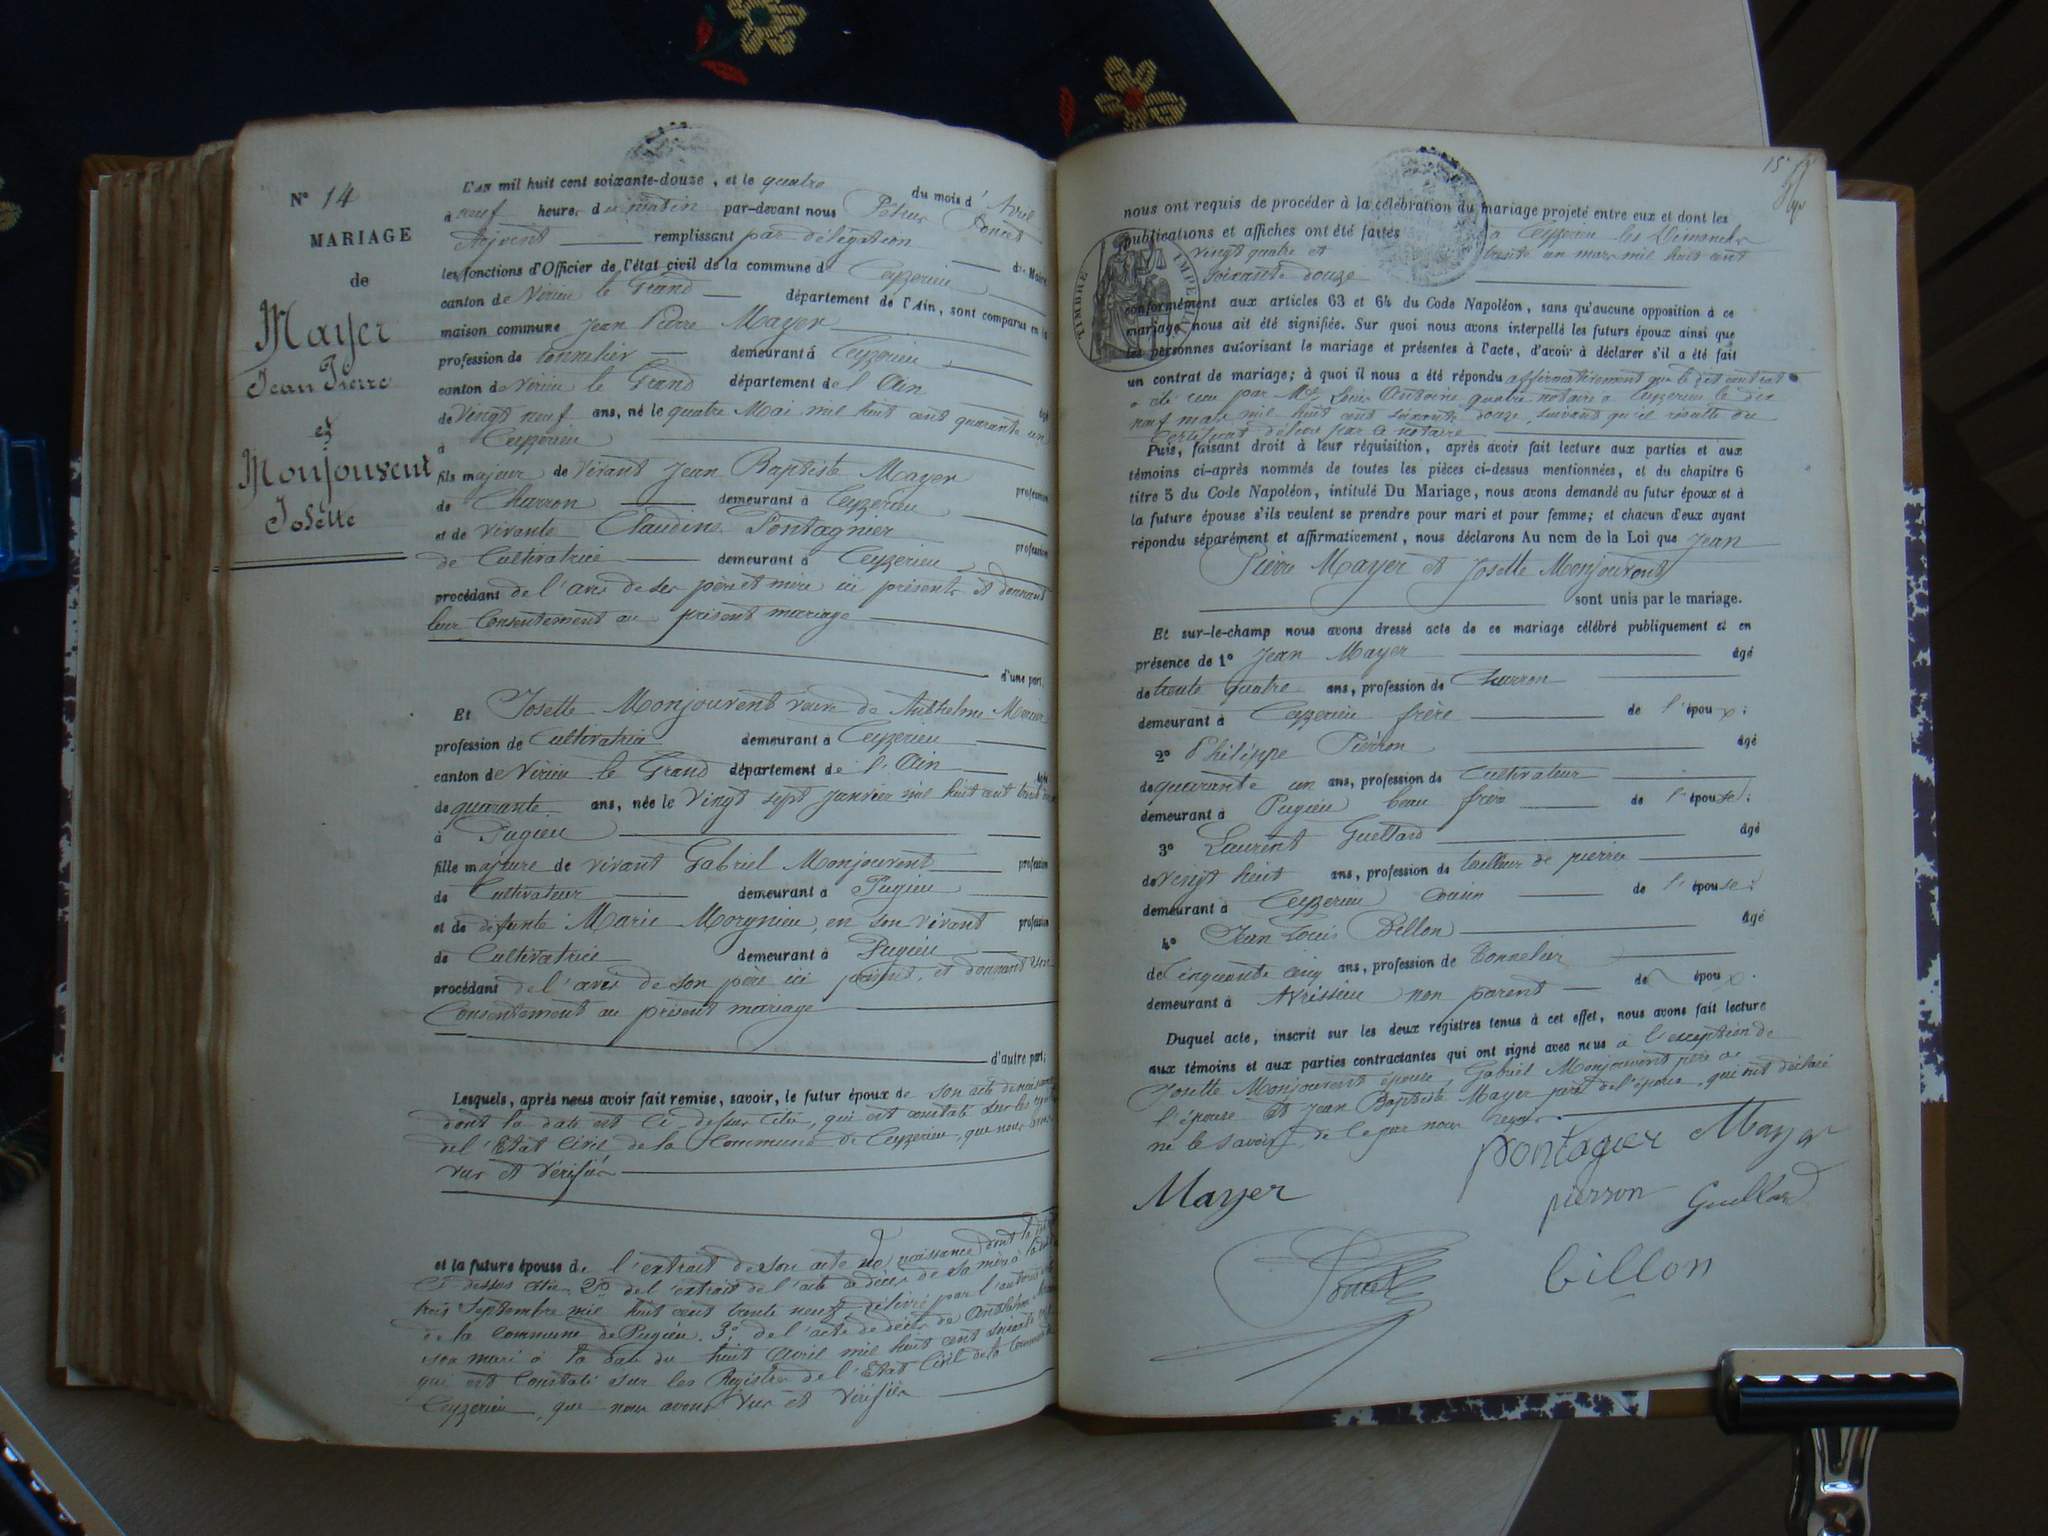 N° 14
MARIAGE
de
Mayer
Jean Pierre
et
Monjouvent
Josette
L'AN mil huit cent soixante-douze, et le quatre du mois d'Avril
à neuf heures du matin par-devant nous Pétrus Poncet
Adjoint remplissant par délégation du Maire
les fonctions d'Officier de l'état civil de la commune de Ceyzerieu
canton de Virieu le Grand département de l'Ain, sont comparus en la
maison commune Jean Pierre Mayer
profession de tonnelier demeurant à Ceyzerieu
canton de Virieu le Grand département de l'Ain âgé
de vingt neuf ans, né le quatre Mai mil huit cent quarante un
à Ceyzerieu
fils majeur de vivant Jean Baptiste Mayer profession
de Charron demeurant à Ceyzerieu
et de vivante Claudine Pontagnier profession
de Cultivatrice demeurant à Ceyzerieu
procédant de l'avis de ses père et mère ici présents et donnant
leur Consentement au présent mariage
d'une part.
Et Josette Monjouvent veuve de Anthelme Mercier
profession de Cultivatrice demeurant à Ceyzerieu
canton de Virieu le Grand département de l'Ain âgée
de quarante ans, née le vingt sept janvier mil huit cent
à Pugieu
fille majeure de vivant Gabriel Monjouvent profession
de Cultivateur demeurant à Pugieu
et de défunte Marie Morgnieu, en son vivant profession
de Cultivatrice demeurant à Pugieu
procédant de l'avis de son père ici présent, et donnant son
Consentement au présent mariage
d'autre part;
Lesquels, après nous avoir fait remise, savoir, le futur époux de son acte de naissance
dont la date est Ci-dessus Citée, qui est constaté sur les
de l'Etat Civil de la Commune de Ceyzerieu, que nous avons
vus et vérifiés
et la future épouse de l'extrait de son acte de naissance dont la date
Ci dessus citée 2° de l'extrait de l'acte de décès de sa mère à la date
trois Septembre mil huit cent trente neuf, délivré par l'autorité
de la Commune de Pugieu. 3° de l'acte de décès de Anthelme
son mari à la date du huit Avril mil huit cent soixante
qui est Constaté sur les Registres de l'Etat Civil de la Commune
Ceyzerieu, que nous avons vus et vérifiés
15
nous ont requis de procéder à la célébration du mariage projeté entre eux et dont les
publications et affiches ont été faites à Ceyzerieu les Dimanches
vingt quatre et trente un mars mil huit cent
soixante douze
TIMBRE IMPERIAL
conformément aux articles 63 et 64 du Code Napoléon, sans qu'aucune opposition à ce
mariage nous ait été signifiée. Sur quoi nous avons interpellé les futurs époux ainsi que
les personnes autorisant le mariage et présentes à l'acte, d'avoir à déclarer s'il a été fait
un contrat de mariage; à quoi il nous a été répondu affirmativement que le dit contrat
a été reçu par Me Louis Antoine notaire à Ceyzerieu le dix
neuf mars mil huit cent soixante douze, suivant qu'il résulte du
Certificat délivré par le notaire
Puis, faisant droit à leur réquisition, après avoir fait lecture aux parties et aux
témoins ci-après nommés de toutes les pièces ci-dessus mentionnées, et du chapitre 6
titre 5 du Code Napoléon, intitulé Du Mariage, nous avons demandé au futur époux et à
la future épouse s'ils veulent se prendre pour mari et pour femme; et chacun d'eux ayant
répondu séparément et affirmativement, nous déclarons Au nom de la Loi que Jean
Pierre Mayer et Josette Monjouvent
sont unis par le mariage.
Et sur-le-champ nous avons dressé acte de ce mariage célébré publiquement et en
présence de 1° Jean Mayer âgé
de trente quatre ans, profession de Charron
demeurant à Ceyzerieu frère de l'époux;
2° Philippe Pierron âgé
de quarante un ans, profession de Cultivateur
demeurant à Pugieu beau frère de l'épouse;
3° Laurent Guillard âgé
de vingt huit ans, profession de tailleur de pierre
demeurant à Ceyzerieu Cousin de l'épouse;
4° Jean Louis Billon âgé
de Cinquante cinq ans, profession de tonnelier
demeurant à Avrissieu non parent de époux.
Duquel acte, inscrit sur les deux registres tenus à cet effet, nous avons fait lecture
aux témoins et aux parties contractantes qui ont signé avec nous à l'exception de
Josette Monjouvent épouse, Gabriel Monjouvent père de
l'épouse et Jean Baptiste Mayer père de l'époux, qui ont déclaré
ne le savoir, de ce par nous requis
pontagnier Mayer
Mayer pierron Guillard
Poncet billon